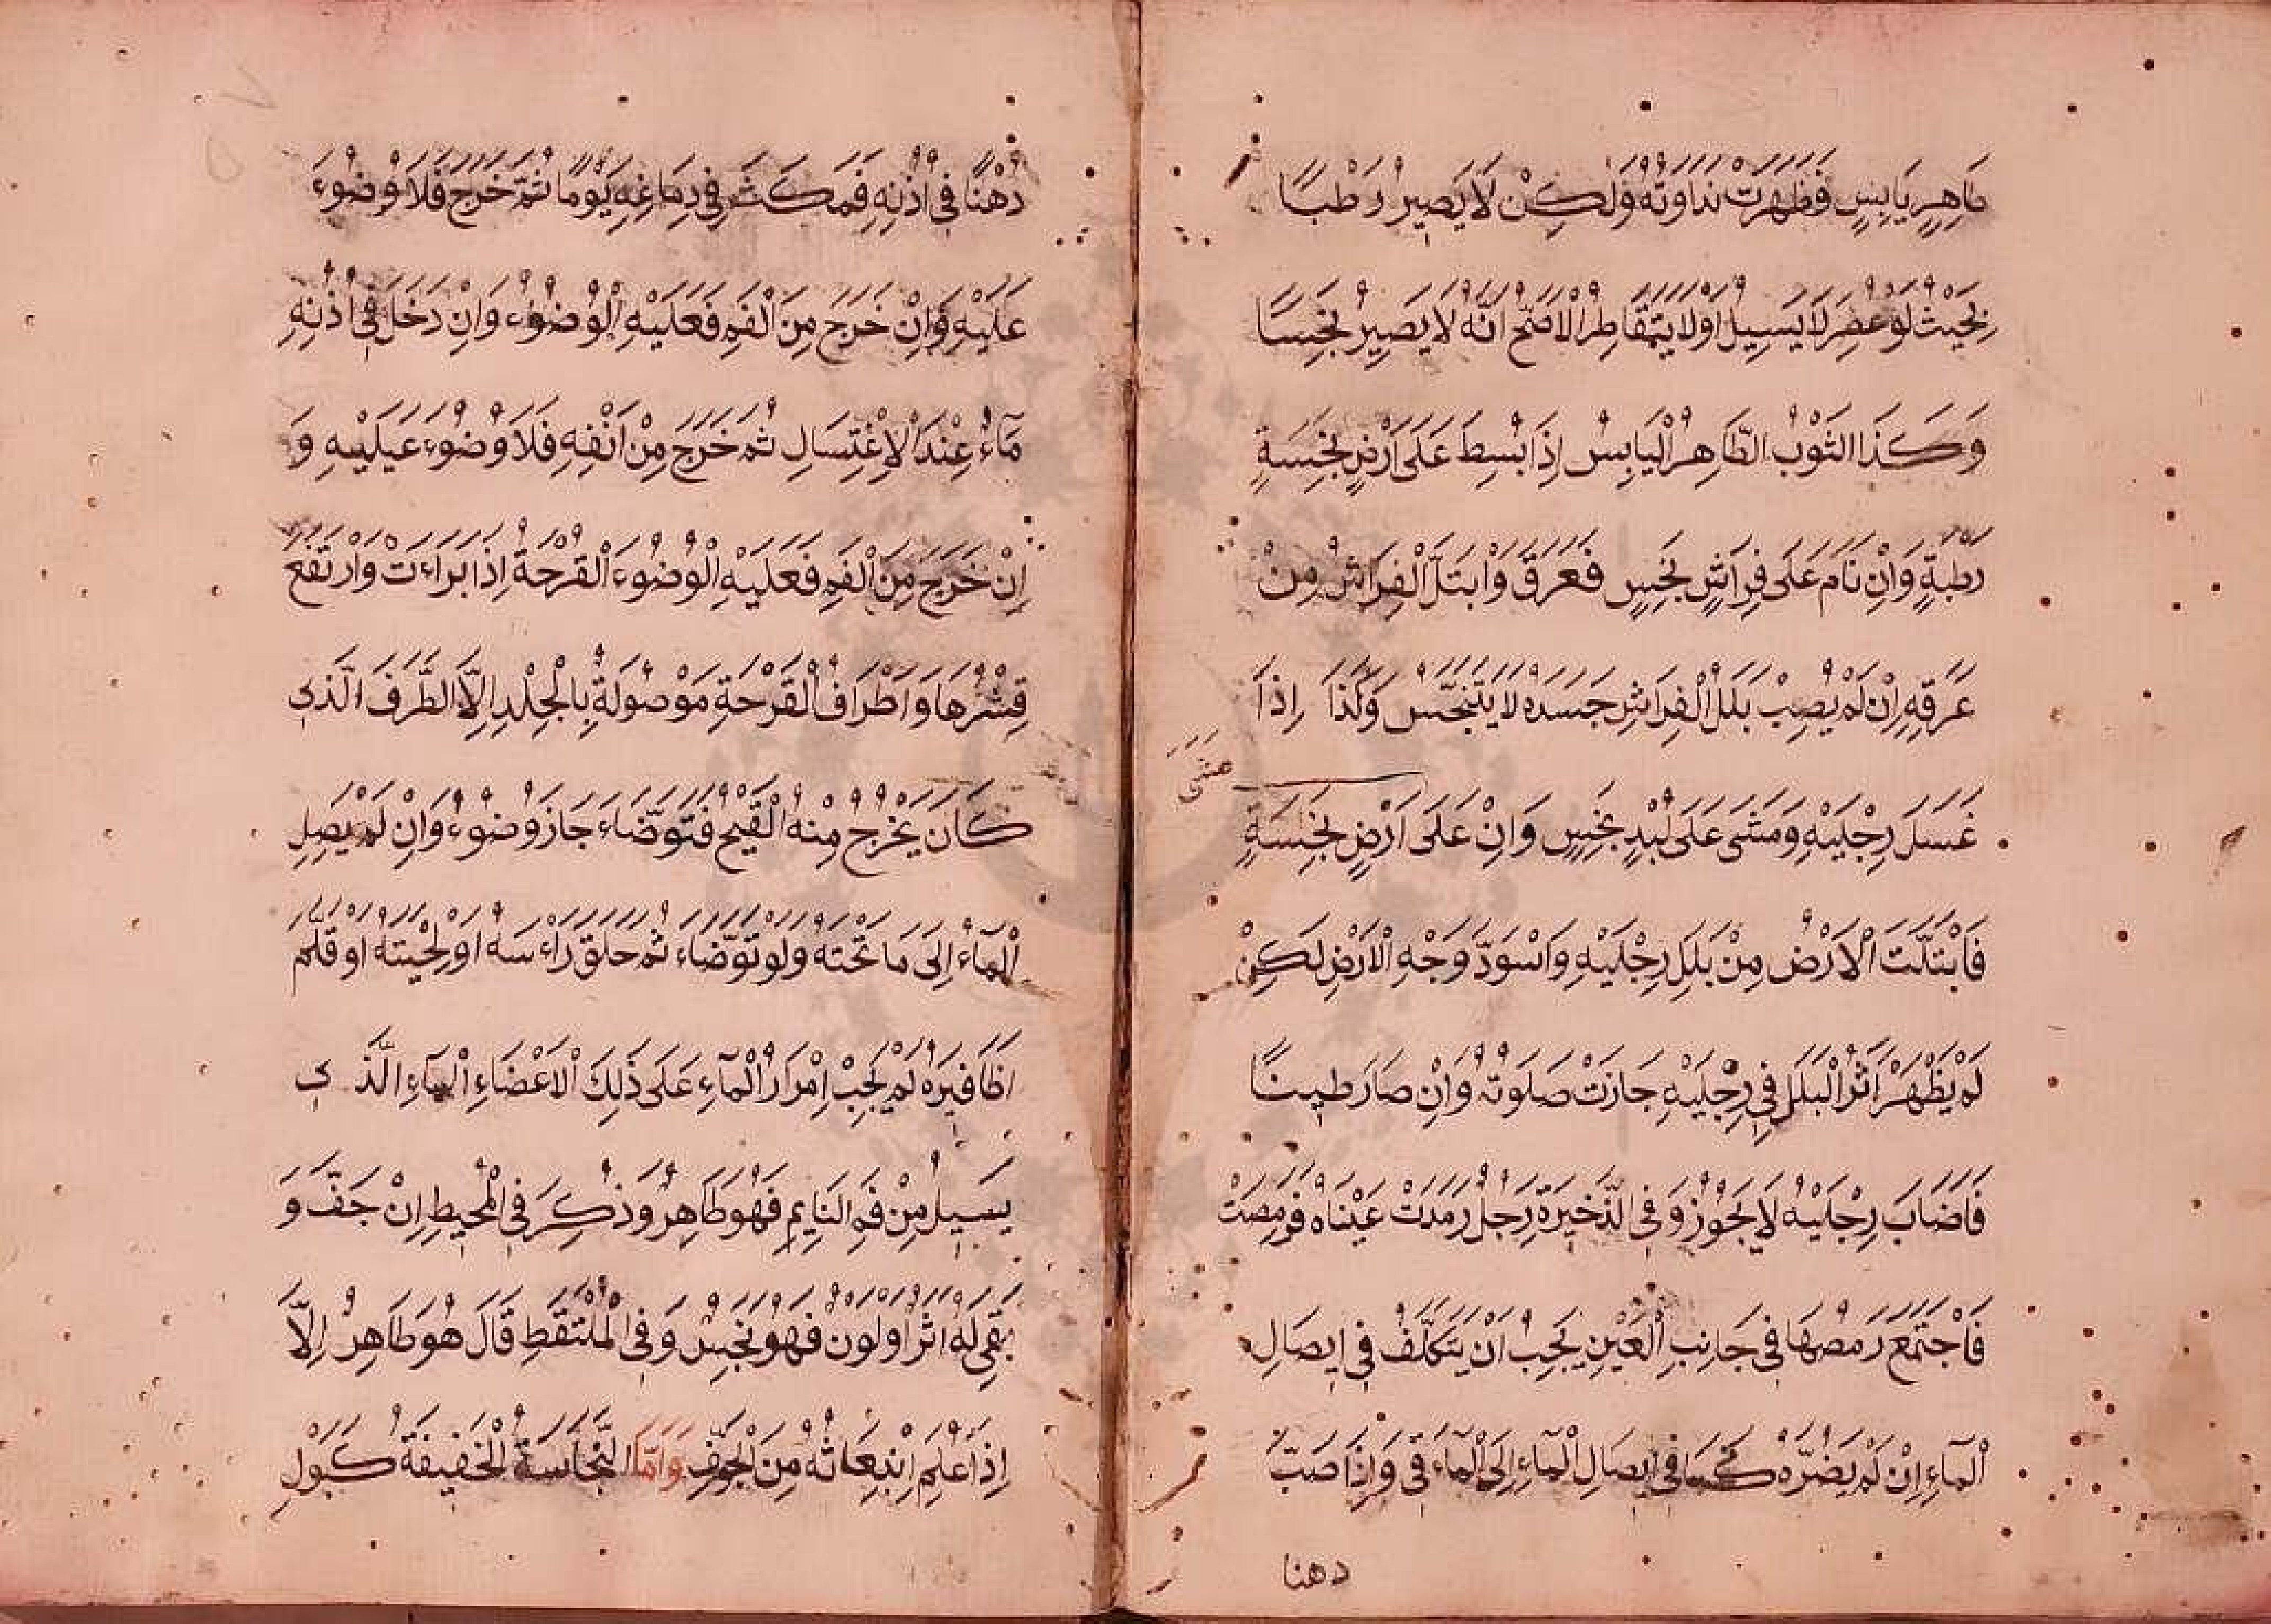 طَاهِرٍ يَابِسٍ فَظَهَرَتْ نداوته وَلٰكِنْ لَا يَصِيرُ رَطْبًا
بِحَيْثُ لَوْ عُصِرَ لَا يَسِيلُ اَوْ لَا يَتَقَاطِرُ الْاَصَحُّ اَنَّهُ لَا يَصِيرُ نَجِسًا
وَكَذَا الثَّوْبُ الطَّاهِرُ الْيَابِسُ اِذَا بُسِطَ عَلَى اَرْضٍ نَجِسَةٍ
رَطْبَةٍ وَاِنْ نَامَ عَلَى فِرَاشٍ نَجِسٍ فَعَرَقَ وَابْتَلَّ الْفِرَاشُ مِنْ
عَرَقِهِ اِنْ لَمْ يُصِبْ بَلَلُ الْفِرَاشِ جَسَدَهُ لَا يَتَنَجَّسُ وَكَذَا اِذَا
غَسَلَ رِجْلَيْهِ وَمَشَى عَلَى لُبْدٍ نَجِسٍ وَاِنْ عَلَى اَرْضٍ نَجِسَةٍ
مَشَى
فَابْتَلَّتَ الْاَرْضُ مِنْ بَلَلِ رِجْلَيْهِ وَاسْوَدَّ وَجْهِ الْاَرْضِ لَكِنْ
لَمْ يَظْهَرْ اَثَرُ الْبَلَلِ فِي رِجْلَيْهِ جَازَتْ صَلَوتُهُ وَاِنْ صَارَ طِينًا
فَاَصَابَ رِجْلَيْهُ لَا يَجُوزُ وَفِي الذَّخِيرَةِ رَجُلٌ رَمَدَتْ عَيْنَاهُ فَرَمِصَتْ
فَاجْتَمَعَ رَمَصُهَا فِي جَانِبِ الْعَيْنِ يَجِبُ اَنْ يَتَكَلَّفُ فِي اِيصَالِ
الْمَاءِ اِنْ لَمْ يَضُرَّهُ كَمَا فِي اِيصَالِ الْمَاءِ اِلَى الْمَآءَقِي وَاِذَا صَبَّ
دهنا
دُهْنًا فِي اُذُنِهِ فَمَكَثَ فِي دِمَاغِهِ يَوْمًا ثُمَّ خَرَجَ فَلَا وُضُوءَ
عَلَيْهِ وَاِنْ خَرَجَ مِنَ الْفَمِ فَعَلَيْهِ الْوُضُوءُ وَاِنْ دَخَلَ فِي اُذُنِهِ
مَآءٌ عِنْدَ الْاِغْتِسَالِ ثُمَّ خَرَجَ مِنْ اَنْفِهِ فَلَا وُضُوءَ عَلَيْهِ وَ
اِنْ خَرَجَ مِنَ الْفَمِ فَعَلَيْهِ الْوُضُوءُ الْقَرْحَةُ اِذَا بَرَاءَتْ وَارْتَفَعَ
قِشْرُهَا وَاَطْرَافُ الْقَرْحَةِ مَوْصُولَةٌ بِالْجِلْدِ اِلَّا الطَّرَفَ الَّذِي
كَانَ يَخْرُجُ مِنْهُ الْقَيْحُ فَتَوَضَّاءَ جَازَ وُضُوءُ وَاِنْ لَمْ يَصِلِ
الْمَآءُ اِلَى مَا تَحْتَهُ وَلَوْ تَوَضَّاءَ ثُمَّ حَلَقَ رَاْءسَهُ اَوْ لِحْيَتَهُ اَوْ قَلَّمَ
اَظَافِيرَهُ لَمْ يَجِبْ اِمْرَارُ الْمَآءِ عَلَى ذَلِكَ الْاَعْضَاءِ الْمَآءِ الَّذِي
يَسِيلُ مِنْ فَمِ النَّايِمِ فَهُوَ طَاهِرٌ وَذُكِرَ فِي الْمُحِيطِ اِنْ جَفَّ وَ
بَقِيَ لَهُ اَثَرٌ اَوْ لَوْنٌ فَهُوَ نَجِسٌ وَفِي الْمُلْتَقَطِ قَالَ هُوَ طَاهِرٌ اِلَّا
اِذَا عُلِمَ اِنْبِعَاثُهُ مِنَ الْجَوْفِ وَاَمَّا النَّجَاسَةُ الْخَفِيفَةُ كَبَوْلِ